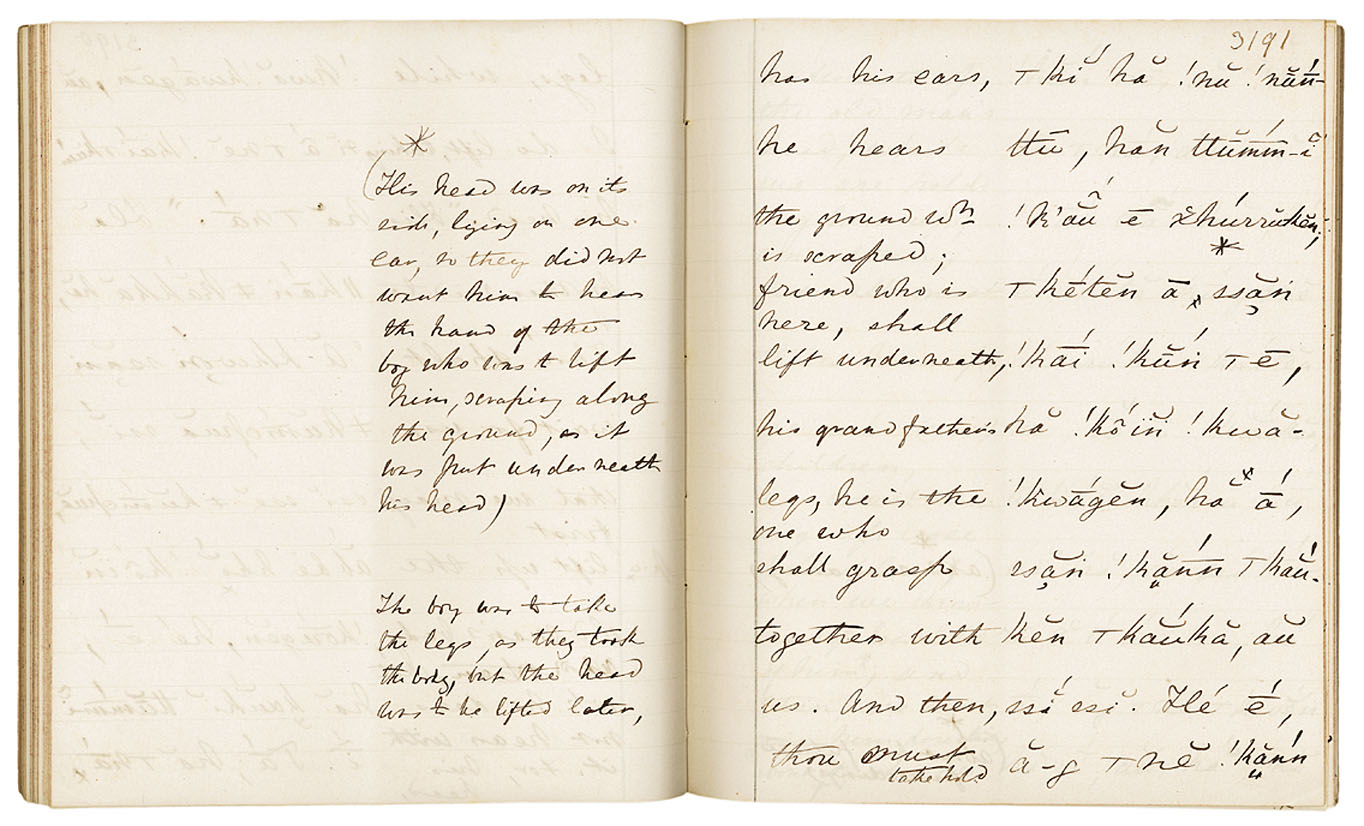 *
(His head was on its
side, lying on one
ear, so they did not
want him to hear
the hand of the
boy who was to lift
him, scraping along
the ground, as it
was put underneath
his head)
The boy was to take
the legs, as they took
the body, but the head
was to be lifted later,
3191
has his ears, ⊤kĭ hă !nŭ !nŭń-
he hears ttŭ, hăn ttŭmḿ-ĭ
the ground wh !k'aŭ ē
is scraped; *
friend who is ⊤kétĕn ā ssăń
here, shall
lift underneath, !kāí !kŭń ⊤ē,
his grandfather's hă !kŏ́ĭn !kwā-
legs, he is the !kwágĕn, hă ā́,
one who
shall grasp ssăń !kăńn ⊤kăŭ-
together with kĕn ⊤kăŭkă, aŭ
us. And then, ssĭ́ ssĭ. Hé é,
thou must ă-g ⊤nĕ !kăńn
take hold